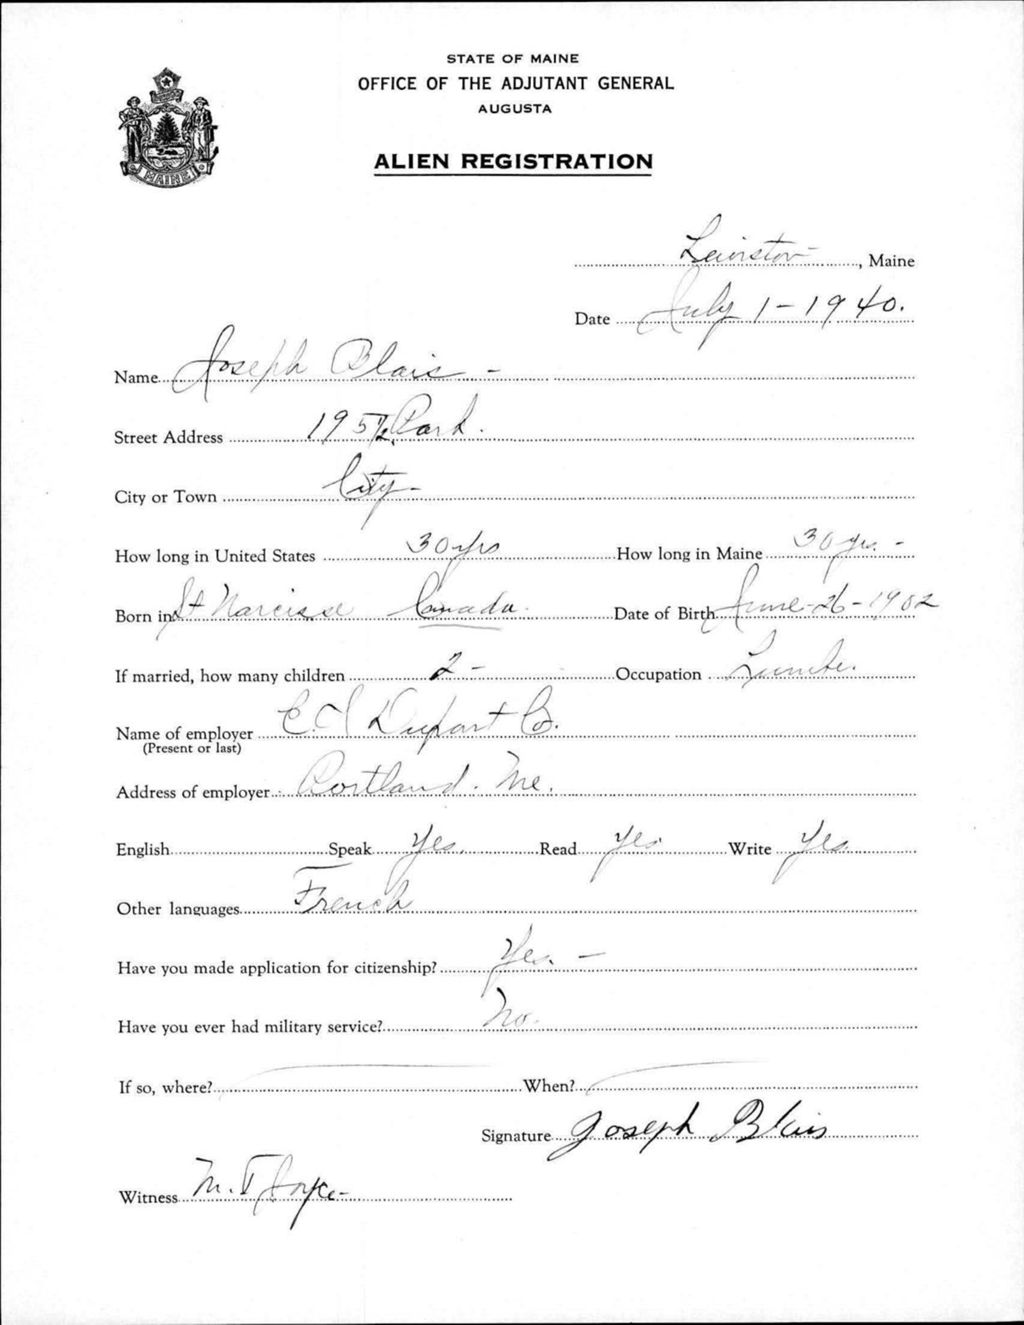 STATE OF MAINE
OFFICE OF THE ADJUTANT GENERAL
AUGUSTA
ALIEN REGISTRATION
MAINE
Lewiston, Maine
Date July 1-1940.
Name Joseph Blais -
Street Address 195½ Park.
City or Town City-
How long in United States 30 yrs How long in Maine 30 yrs. -
Born in St Narcisse Canada. Date of Birth June-26-1902
If married, how many children 2 - Occupation
Name of employer E. I Dupont Co.
(Present or last)
Address of employer Portland. Me.
English Speak Yes. Read Yes Write Yes
Other languages French
Have you made application for citizenship? Yes. -
Have you ever had military service? No.
If so, where? When?
Signature Joseph Blais
Witness M. J Joyce-